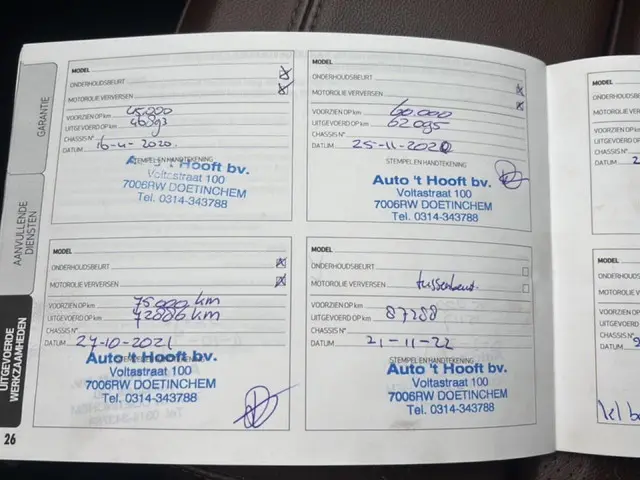 GARANTIE
AANVULLENDE
DIENSTEN
UITGEVOERDE
WERKZAAMHEDEN
26
MODEL
ONDERHOUDSBEURT
MOTOROLIE VERVERSEN
VOORZIEN OP km 45.000
UITGEVOERD OP km
CHASSIS N°
DATUM 16-4-2020.
STEMPEL EN HANDTEKENING
Auto 't Hooft bv.
Voltastraat 100
7006RW DOETINCHEM
Tel. 0314-343788
MODEL
ONDERHOUDSBEURT
MOTOROLIE VERVERSEN
VOORZIEN OP km 60.000
UITGEVOERD OP km 62095
CHASSIS N°
DATUM 25-11-2020
STEMPEL EN HANDTEKENING
Auto 't Hooft bv.
Voltastraat 100
7006RW DOETINCHEM
Tel. 0314-343788
MODEL
ONDERHOUDSBEURT
MOTOROLIE VERVERSEN
VOORZIEN OP km 75000 km
UITGEVOERD OP km 72886 km
CHASSIS N°
DATUM 27-10-2021
Auto 't Hooft bv.
Voltastraat 100
7006RW DOETINCHEM
Tel. 0314-343788
MODEL
ONDERHOUDSBEURT
MOTOROLIE VERVERSEN tussenbeurt.
VOORZIEN OP km
UITGEVOERD OP km 87288
CHASSIS N°
DATUM 21-11-22
STEMPEL EN HANDTEKENING
Auto 't Hooft bv.
Voltastraat 100
7006RW DOETINCHEM
Tel. 0314-343788